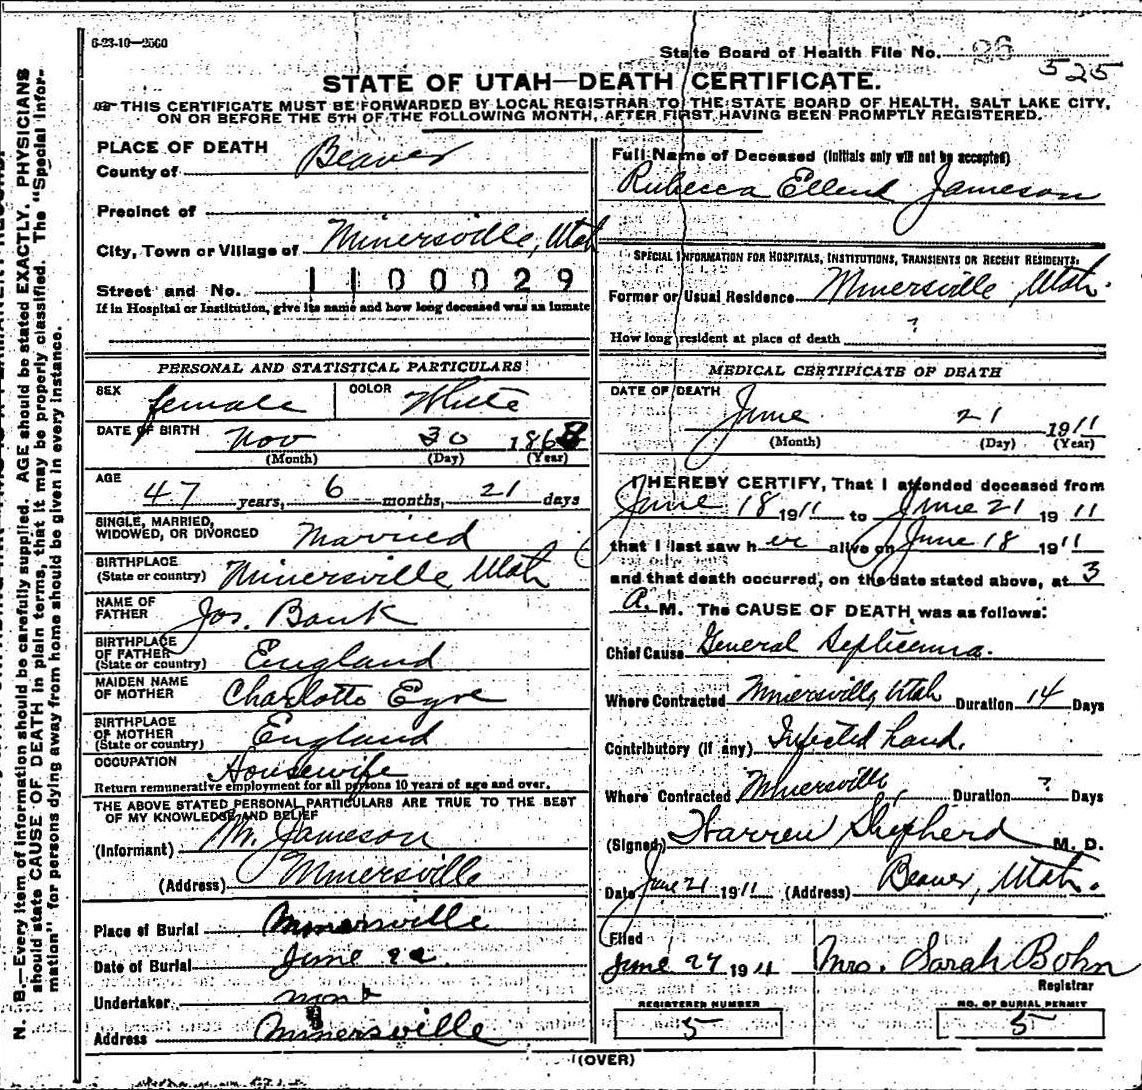 6-23-10—2560
State Board of Health File No. 26 525
STATE OF UTAH—DEATH CERTIFICATE.
THIS CERTIFICATE MUST BE FORWARDED BY LOCAL REGISTRAR TO THE STATE BOARD OF HEALTH, SALT LAKE CITY,
ON OR BEFORE THE 5TH OF THE FOLLOWING MONTH, AFTER FIRST HAVING BEEN PROMPTLY REGISTERED.
PLACE OF DEATH
County of Beaver
Precinct of
City, Town or Village of Minersville, Utah
Street and No. 1100029
If in Hospital or Institution, give its name and how long deceased was an inmate
PERSONAL AND STATISTICAL PARTICULARS
SEX female COLOR White
DATE OF BIRTH Nov 30 1868
(Month) (Day) (Year)
AGE 47 years, 6 months, 21 days
SINGLE, MARRIED,
WIDOWED, OR DIVORCED Married
BIRTHPLACE
(State or country) Minersville Utah
NAME OF
FATHER Jos. Bank
BIRTHPLACE
OF FATHER
(State or country) England
MAIDEN NAME
OF MOTHER Charlotte Eyre
BIRTHPLACE
OF MOTHER
(State or country) England
OCCUPATION Housewife
Return remunerative employment for all persons 10 years of age and over.
THE ABOVE STATED PERSONAL PARTICULARS ARE TRUE TO THE BEST
OF MY KNOWLEDGE AND BELIEF
(Informant) M. Jameson
(Address) Minersville
Place of Burial Minersville
Date of Burial June 22
Undertaker none
Address Minersville
Full Name of Deceased (Initials only will not be accepted)
Rubecca Ellend Jameson
SPECIAL INFORMATION FOR HOSPITALS, INSTITUTIONS, TRANSIENTS OR RECENT RESIDENTS.
Former or Usual Residence Minersville, Utah.
How long resident at place of death ?
MEDICAL CERTIFICATE OF DEATH
DATE OF DEATH
June 21 1911
(Month) (Day) (Year)
I HEREBY CERTIFY, That I attended deceased from
June 18 1911 to June 21 1911
that I last saw her alive on June 18 1911
and that death occurred, on the date stated above, at 3
A. M. The CAUSE OF DEATH was as follows:
Chief Cause General Septicemia.
Where Contracted Minersville, Utah Duration 14 Days
Contributory (if any) Infected hand.
Where Contracted Minersville, Duration ? Days
(Signed) Warren Shepherd M. D.
Date June 21 1911 (Address) Beaver, Utah.
Filed
June 27 1911 Mrs. Sarah Bohn
Registrar
REGISTERED NUMBER
5
NO. OF BURIAL PERMIT
5
(OVER)
N. B.—Every item of information should be carefully supplied. AGE should be stated EXACTLY. PHYSICIANS
should state CAUSE OF DEATH in plain terms, that it may be properly classified. The "Special Infor-
mation" for persons dying away from home should be given in every instance.